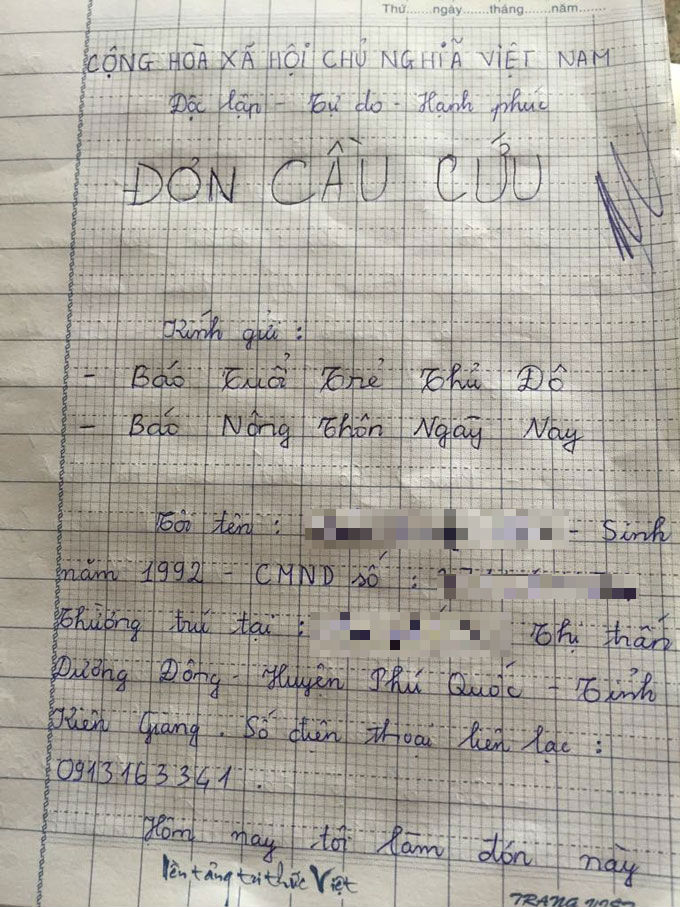 Thứ......ngày......tháng......năm......
CỘNG HOÀ XÃ HỘI CHỦ NGHĨA VIỆT NAM
Độc lập - Tự do - Hạnh phúc
ĐƠN CẦU CỨU
Kính gửi :
- Báo Tuổi Trẻ Thủ Đô
- Báo Nông Thôn Ngày Nay
Tôi tên : - Sinh
năm 1992 - CMND số :
Thường trú tại : Thị trấn
Dương Đông - Huyện Phú Quốc - Tỉnh
Kiên Giang. Số điện thoại liên lạc :
0913163341.
Hôm nay tôi làm đơn này
Nền tảng tri thức Việt
TRANG